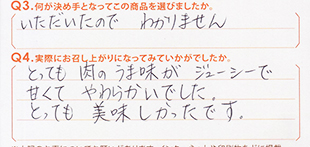 Q3.何が決め手となってこの商品を選びましたか。
いただいたので わかりません
Q4.実際にお召し上がりになってみていかがでしたか。
とっても 肉のうま味が ジューシーで
甘くて やわらかいでした。
とっても 美味しかったです。